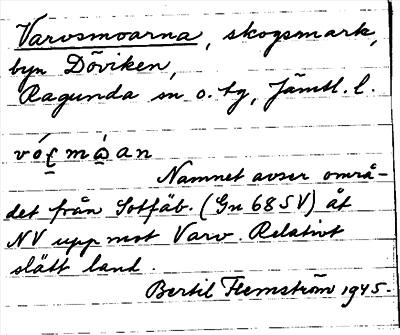 Varvsmoarna, skogsmark,
byn Döviken,
Ragunda sn o. tg, Jämtl. l.
Namnet avser områ-
det från Sotfäb. (Gn 68 SV) åt
NV upp mot Varv. Relativt
slätt land.
Bertil Flemström 1945.